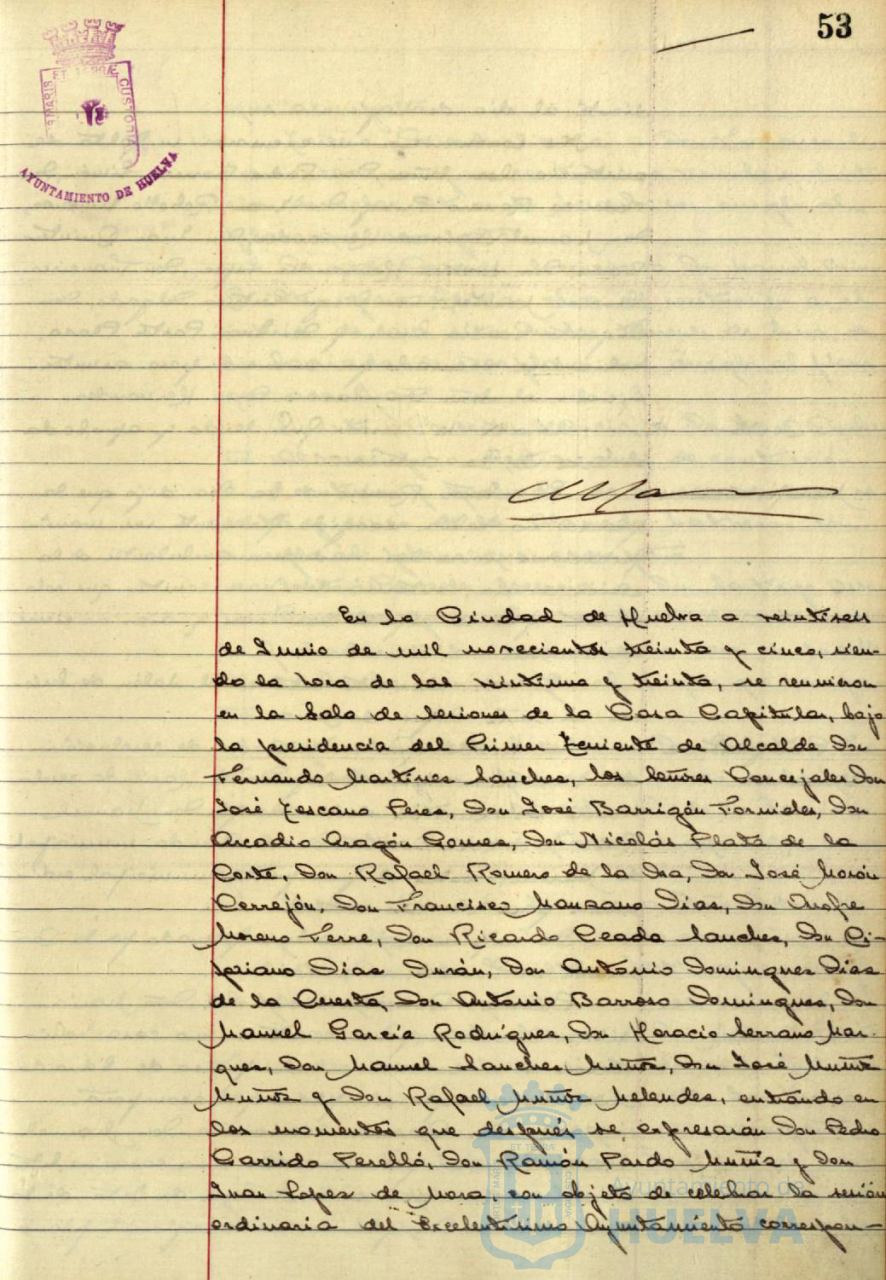 53
PORTUS MARIS ET TERRÆ CUSTODIA
AYUNTAMIENTO DE HUELVA
En la Ciudad de Huelva a veintiseis
de Junio de mil novecientos treinta y cinco, sien-
do la hora de las veintiuna y treinta, se reunieron
en la Sala de Sesiones de la Casa Capitular, bajo
la presidencia del Primer Teniente de Alcalde Don
Fernando Martines Sanches, los Señores Concejales Don
José Lescano Peres, Don José Barrigón Fornieles, Don
Arcadio Aragón Gomes, Don Nicolás Plata de la
Corte, Don Rafael Romero de la Osa, Don José Morón
Cerrejón, Don Francisco Manzano Dias, Don Onofre
Moreno Ferre, Don Ricardo Ceada Sanches, Don Ci-
priano Dias Durán, Don Antonio Domingues Dias
de la Cuesta, Don Antonio Barroso Domingues, Don
Manuel García Rodrígues, Don Horacio Serrano Mar-
ques, Don Manuel Sanches Muñoz, Don José Muñiz
Muñoz y Don Rafael Muñoz Melendes, entrando en
los momentos que después se expresarán Don Pedro
Garrido Perelló, Don Ramón Pardo Muñiz y Don
Juan Lopez de Mora, con objeto de celebrar la sesión
ordinaria del Excelentísimo Ayuntamiento correspon-
Ayuntamiento de
HUELVA